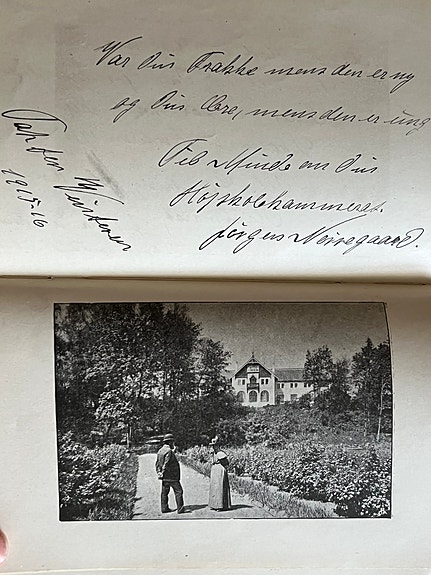 Var din Frakke mens den er ny
og din Ære, mens den er ung
Til Minde om din
Højskolekammerat.
Jørgen Nørregaard.
Tak for Vinteren
1915-16